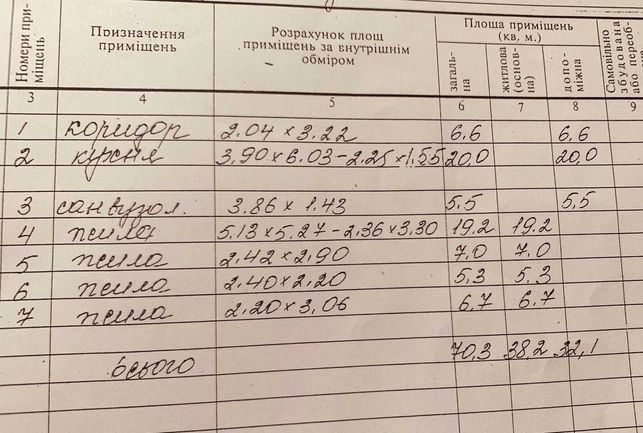 Номери приміщень
Призначення приміщень
Розрахунок площ приміщень за внутрішнім обміром
Площа приміщень (кв, м.)
загальна
житлова (основна)
допоміжна
Самовільно збудована або переоб-
3 4 5 6 7 8 9
1 коридор 2.04 × 3.22 6.6 6.6
2 кухня 3.90 × 6.03 – 2.25 × 1.55 20,0 20,0
3 санвузол. 3.86 × 1.43 5.5 5,5
4 жила 5.13 × 5.27 – 2.36 × 3.30 19.2 19.2
5 жила 2.42 × 2.90 7.0 7.0
6 жила 2.40 × 2.20 5.3 5.3
7 жила 2.20 × 3,06 6.7 6.7
всього 70,3 38,2 32,1